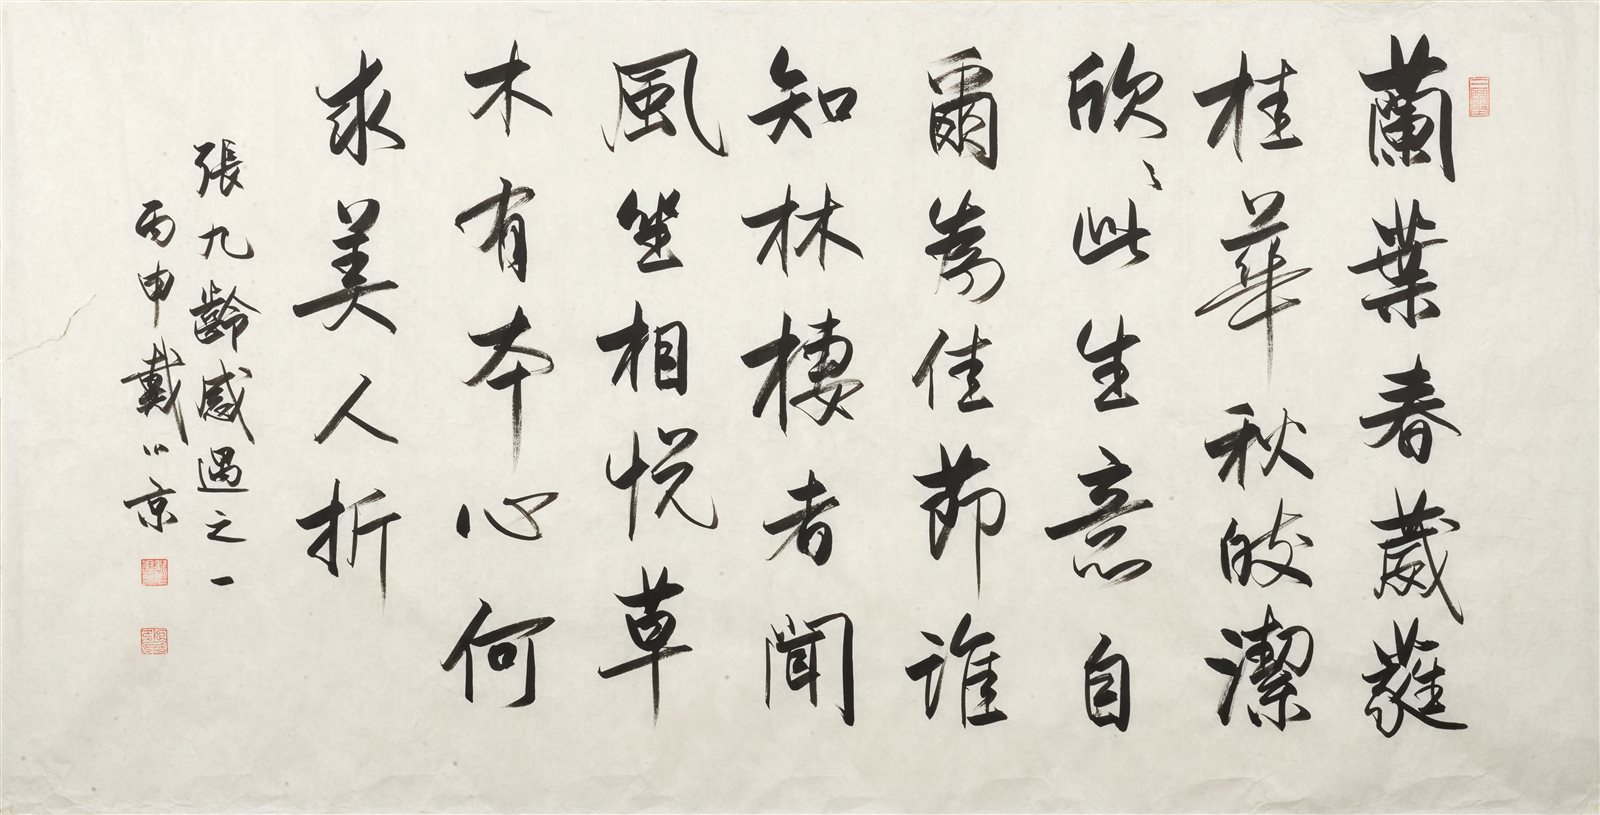 蘭葉春葳蕤
桂華秋皎潔
欣〻此生意自
爾爲佳節誰
知林棲者聞
風坐相悦草
木有本心何
求美人折
張九齡感遇之一
丙申戴小京